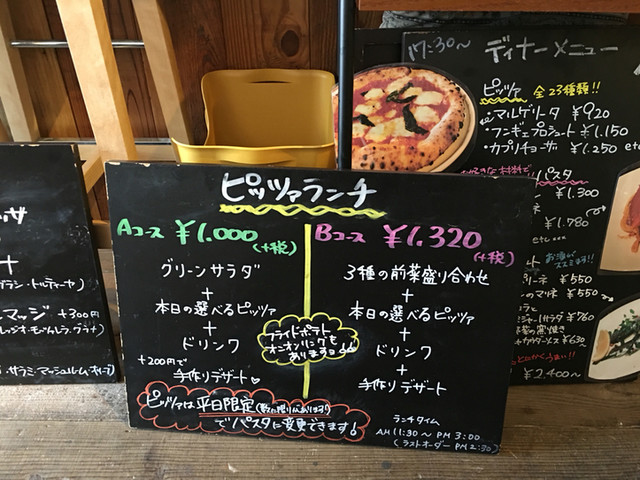 ピッツァランチ
Aコース ¥1.000
(+税)
グリーンサラダ
+
本日の選べるピッツァ
+
ドリンク
+200円で
+
手作りデザート
Bコース ¥1.320
(+税)
3種の前菜盛り合わせ
+
本日の選べるピッツァ
+
ドリンク
+
手作りデザート
フライドポテト
オニオンリングも
あります
ピッツァは平日限定(数に限りがあります)
でパスタに変更できます!
ランチタイム
AM 11:30〜PM 3:00
(ラストオーダー PM 2:30)
17:30〜
ディナーメニュー
ピッツァ 全23種類!!
マルゲリータ ¥920
・フンギエプロシュート ¥1.150
・カプリチョーザ ¥1.250 etc
パスタ
¥1.300
¥1.780
¥550
¥550
¥760
¥630
¥2.400〜
+300円
サラミ・マッシュルーム